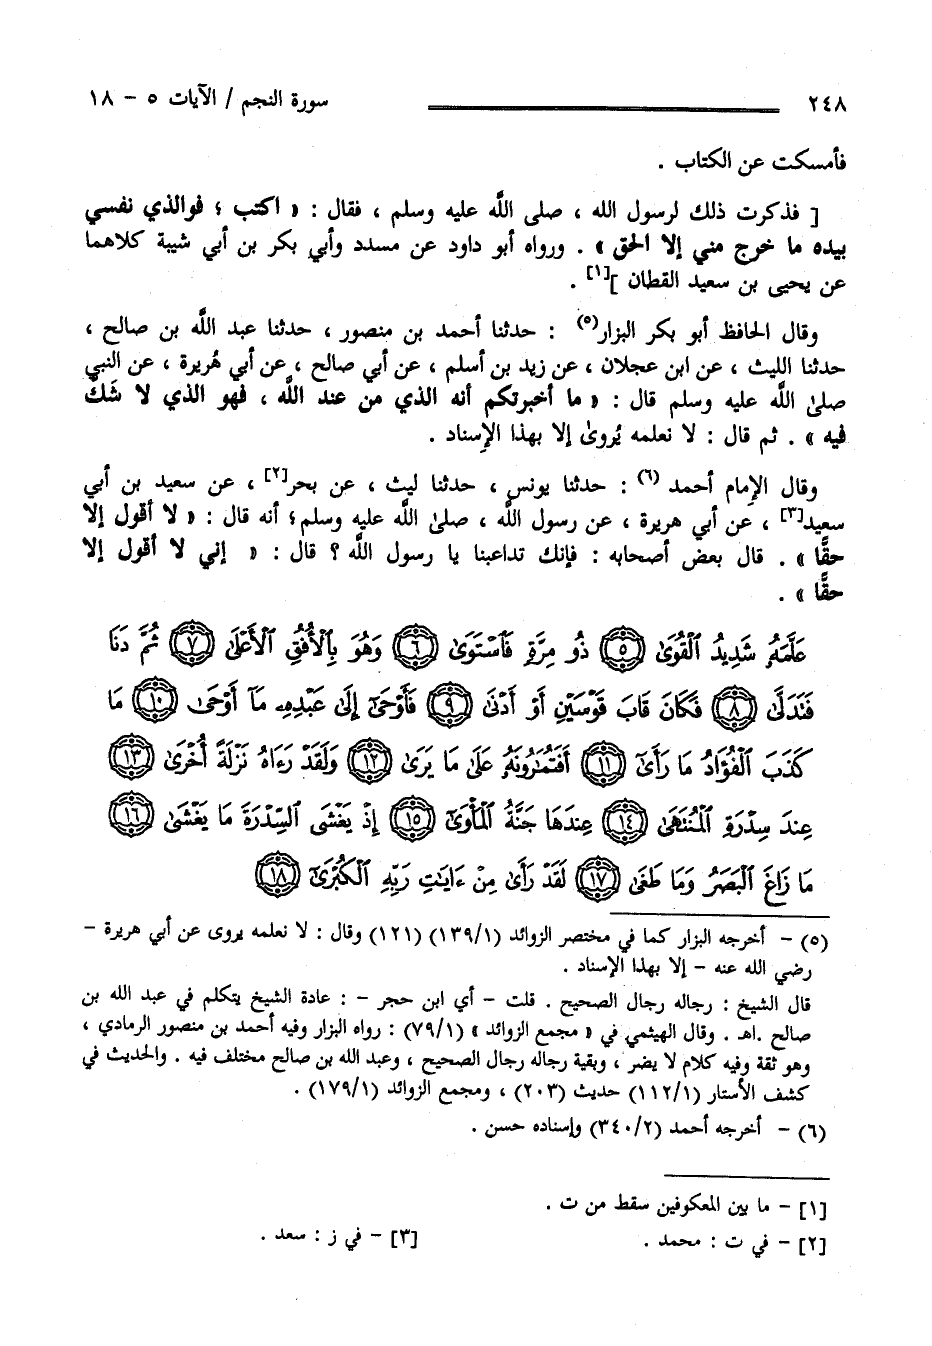 ٢٤٨ سورة النجم / الآيات ٥ - ١٨
فأمسكت عن الكتاب .
[ فذكرت ذلك لرسول الله ، صلى اللَّه عليه وسلم ، فقال : « اكتب ؛ فوالذي نفسي
بيده ما خرج مني إلا الحق » . ورواه أبو داود عن مسدد وأبي بكر بن أبي شيبة كلاهما
عن يحيى بن سعيد القطان ][١] .
وقال الحافظ أبو بكر البزار(٥) : حدثنا أحمد بن منصور ، حدثنا عبد اللَّه بن صالح ،
حدثنا الليث ، عن ابن عجلان ، عن زيد بن أسلم ، عن أبي صالح ، عن أبي هُريرة ، عن النبي
صلىٰ اللَّه عليه وسلم قال : « ما أخبرتكم أنه الذي من عند اللَّه ، فهو الذي لا شَكَّ
فيه » . ثم قال : لا نعلمه يُروىٰ إلا بهذا الإسناد .
وقال الإمام أحمد (٦) : حدثنا يونس ، حدثنا ليث ، عن بحر[٢] ، عن سعيد بن أبي
سعيد[٣] ، عن أبي هريرة ، عن رسول اللَّه ، صلىٰ اللَّه عليه وسلم؛ أنه قال : « لا أقول إلا
حقًّا » . قال بعض أصحابه : فإنك تداعبنا يا رسول اللَّه ؟ قال : « إني لا أقول إلا
حقًّا » .
عَلَّمَهُۥ شَدِيدُ ٱلْقُوَىٰ ٥ ذُو مِرَّةٍ فَٱسْتَوَىٰ ٦ وَهُوَ بِٱلْأُفُقِ ٱلْأَعْلَىٰ ٧ ثُمَّ دَنَا
فَتَدَلَّىٰ ٨ فَكَانَ قَابَ قَوْسَيْنِ أَوْ أَدْنَىٰ ٩ فَأَوْحَىٰٓ إِلَىٰ عَبْدِهِۦ مَآ أَوْحَىٰ ١٠ مَا
كَذَبَ ٱلْفُؤَادُ مَا رَأَىٰٓ ١١ أَفَتُمَٰرُونَهُۥ عَلَىٰ مَا يَرَىٰ ١٢ وَلَقَدْ رَءَاهُ نَزْلَةً أُخْرَىٰ ١٣
عِندَ سِدْرَةِ ٱلْمُنتَهَىٰ ١٤ عِندَهَا جَنَّةُ ٱلْمَأْوَىٰٓ ١٥ إِذْ يَغْشَى ٱلسِّدْرَةَ مَا يَغْشَىٰ ١٦
مَا زَاغَ ٱلْبَصَرُ وَمَا طَغَىٰ ١٧ لَقَدْ رَأَىٰ مِنْ ءَايَٰتِ رَبِّهِ ٱلْكُبْرَىٰٓ ١٨
(٥) - أخرجه البزار كما في مختصر الزوائد (١٣٩/١) (١٢١) وقال : لا نعلمه يروى عن أبي هريرة -
رضي الله عنه - إلا بهذا الإسناد .
قال الشيخ : رجاله رجال الصحيح . قلت - أي ابن حجر - : عادة الشيخ يتكلم في عبد الله بن
صالح .اهـ . وقال الهيثمي في « مجمع الزوائد » (٧٩/١) : رواه البزار وفيه أحمد بن منصور الرمادي ،
وهو ثقة وفيه كلام لا يضر ، وبقية رجاله رجال الصحيح ، وعبد الله بن صالح مختلف فيه . والحديث في
كشف الأستار (١١٢/١) حديث (٢٠٣) ، ومجمع الزوائد (١٧٩/١) .
(٦) - أخرجه أحمد (٣٤٠/٢) وإسناده حسن .
[١] - ما بين المعكوفين سقط من ت .
[٢] - في ت : محمد . [٣] - في ز : سعد .